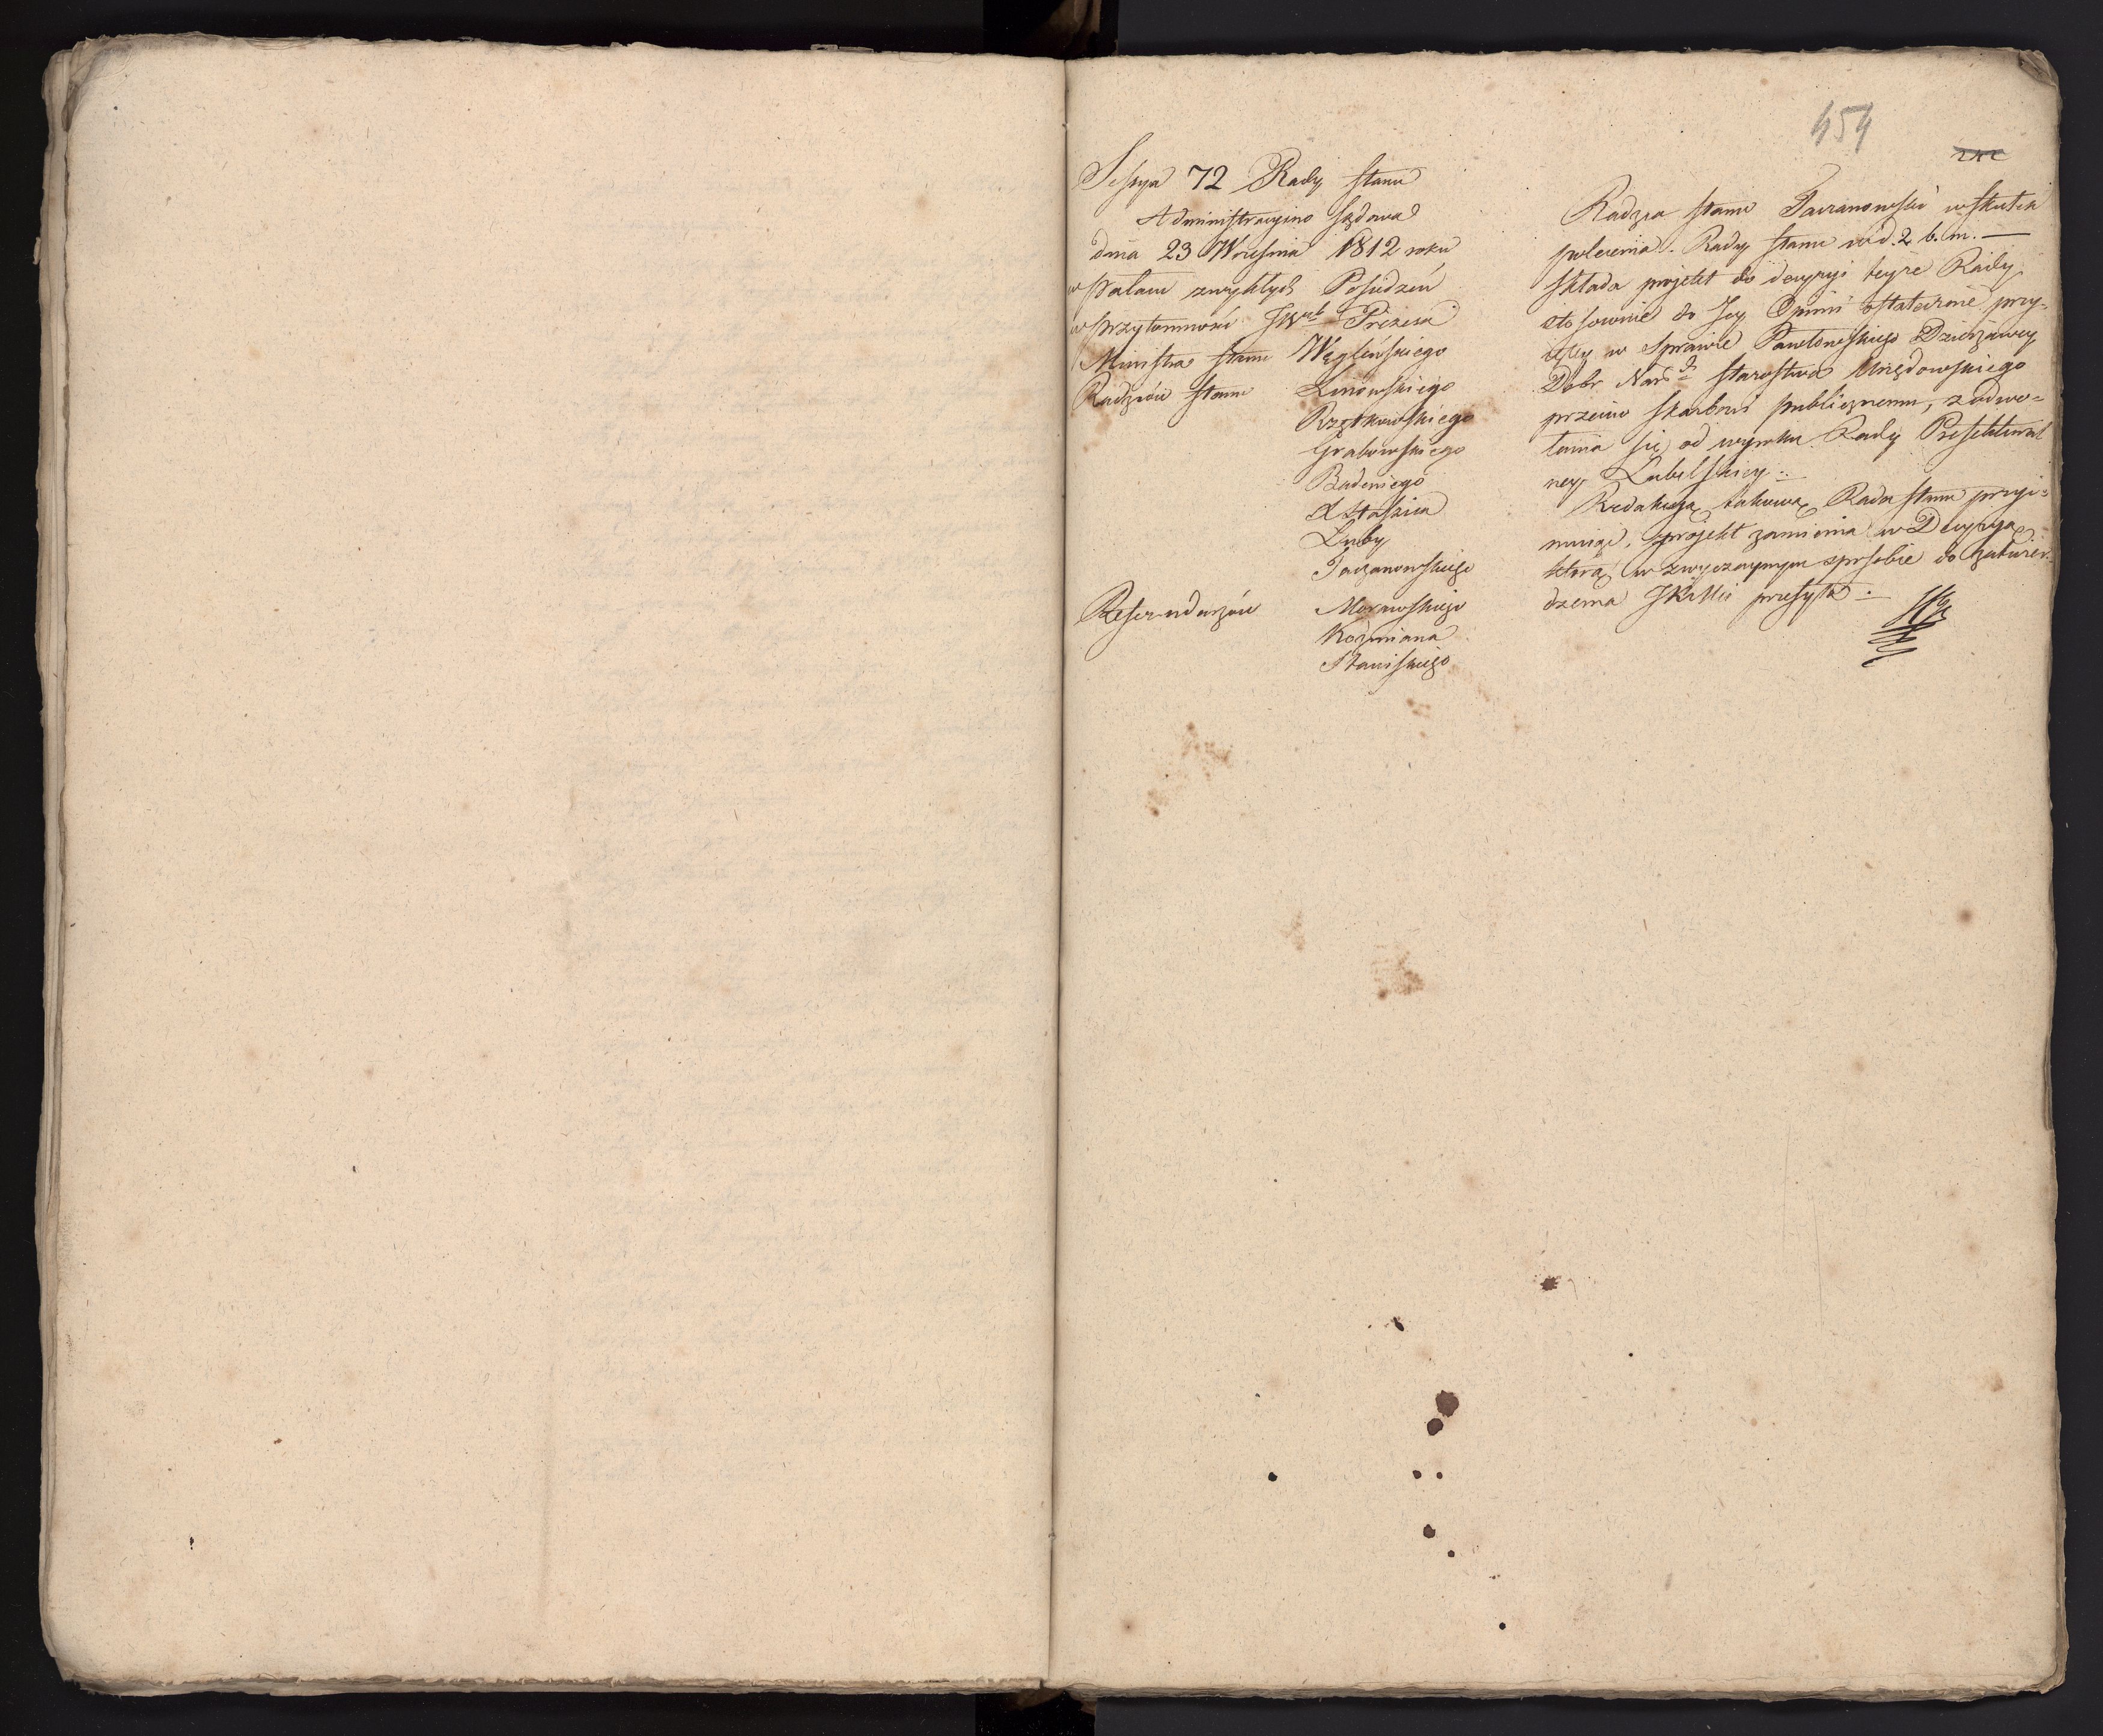 454
Sessya 72 Rady Stanu
Administracyino Sądowa
dnia 23 Września 1812 roku
w Pałacu zwykłych Posiedzeń
w przytomności JW Prezesa
Ministra Stanu Węgleńskiego
Radzców Stanu Linowskiego
Rzętkowskiego
Grabowskiego
Badeniego
X Staszica
Łuby
Taczanowskiego
Referendarzów Morawskiego
Koźmiana
Staniskiego
Radzca Stanu Taczanowski w skutek
polecenia Rady Stanu w d. 2 b. m. —
składa projekt do decyzyi teyże Rady
stosownie do Jey Opinii ostatecznie przy-
iętey w Sprawie Pawłowskiego Dzierżawcy
Dobr Nar Starostwa Urzędowskiego
przeciw Skarbowi publicznemu, z odwo=
łania się od wyroku Rady Prefektural
ney Lubelskiey.
Redakcyą takową Rada Stanu przyi=
muiąc, projekt zamienia w Decyzyą
którą w zwyczaynym sposobie do zatwier-
dzenia JKMci przesyła.